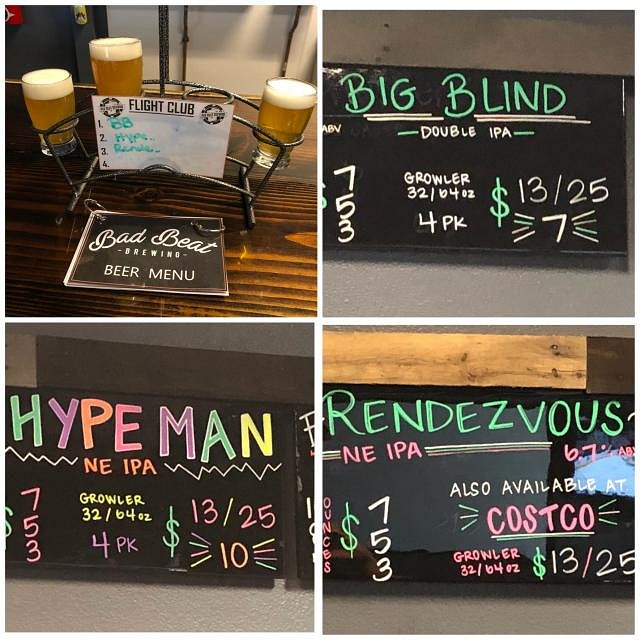 FLIGHT CLUB
1. BB
2. Hype
3. Rende
4.
Bad Beat
-BREWING-
BEER MENU
BIG BLIND
ABV
DOUBLE IPA
7
5
3
GROWLER
32/64oz
$ 13/25
4 PK
7
HYPE MAN
NE IPA
$ 7
5
3
GROWLER
32/64oz
$ 13/25
4 PK
10
RENDEZVOUS
NE IPA
6.7% ABV
OUNCES
$ 7
5
3
ALSO AVAILABLE AT
COSTCO
GROWLER
32/64oz
$13/25